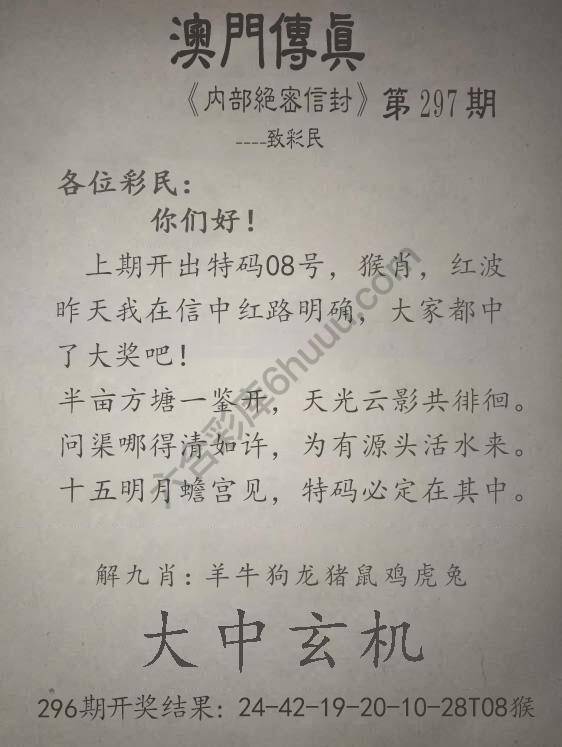 澳門傳眞
《内部絕密信封》第297期
----致彩民
各位彩民：
你们好！
上期开出特码08号，猴肖，红波
昨天我在信中红路明确，大家都中
了大奖吧！
半亩方塘一鉴开，天光云影共徘徊。
问渠哪得清如许，为有源头活水来。
十五明月蟾宫见，特码必定在其中。
六合彩库6huuu.com
解九肖：羊牛狗龙猪鼠鸡虎兔
大中玄机
296期开奖结果：24-42-19-20-10-28T08猴